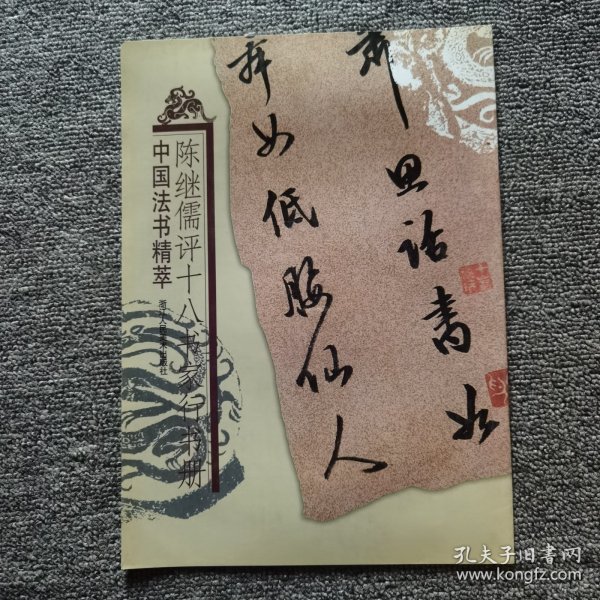 陈继儒评十八书家行书册
中国法书精萃
浙江人民美术出版社
思话书如
舞女低腰仙人
孔夫子旧书网
www.kongfz.com